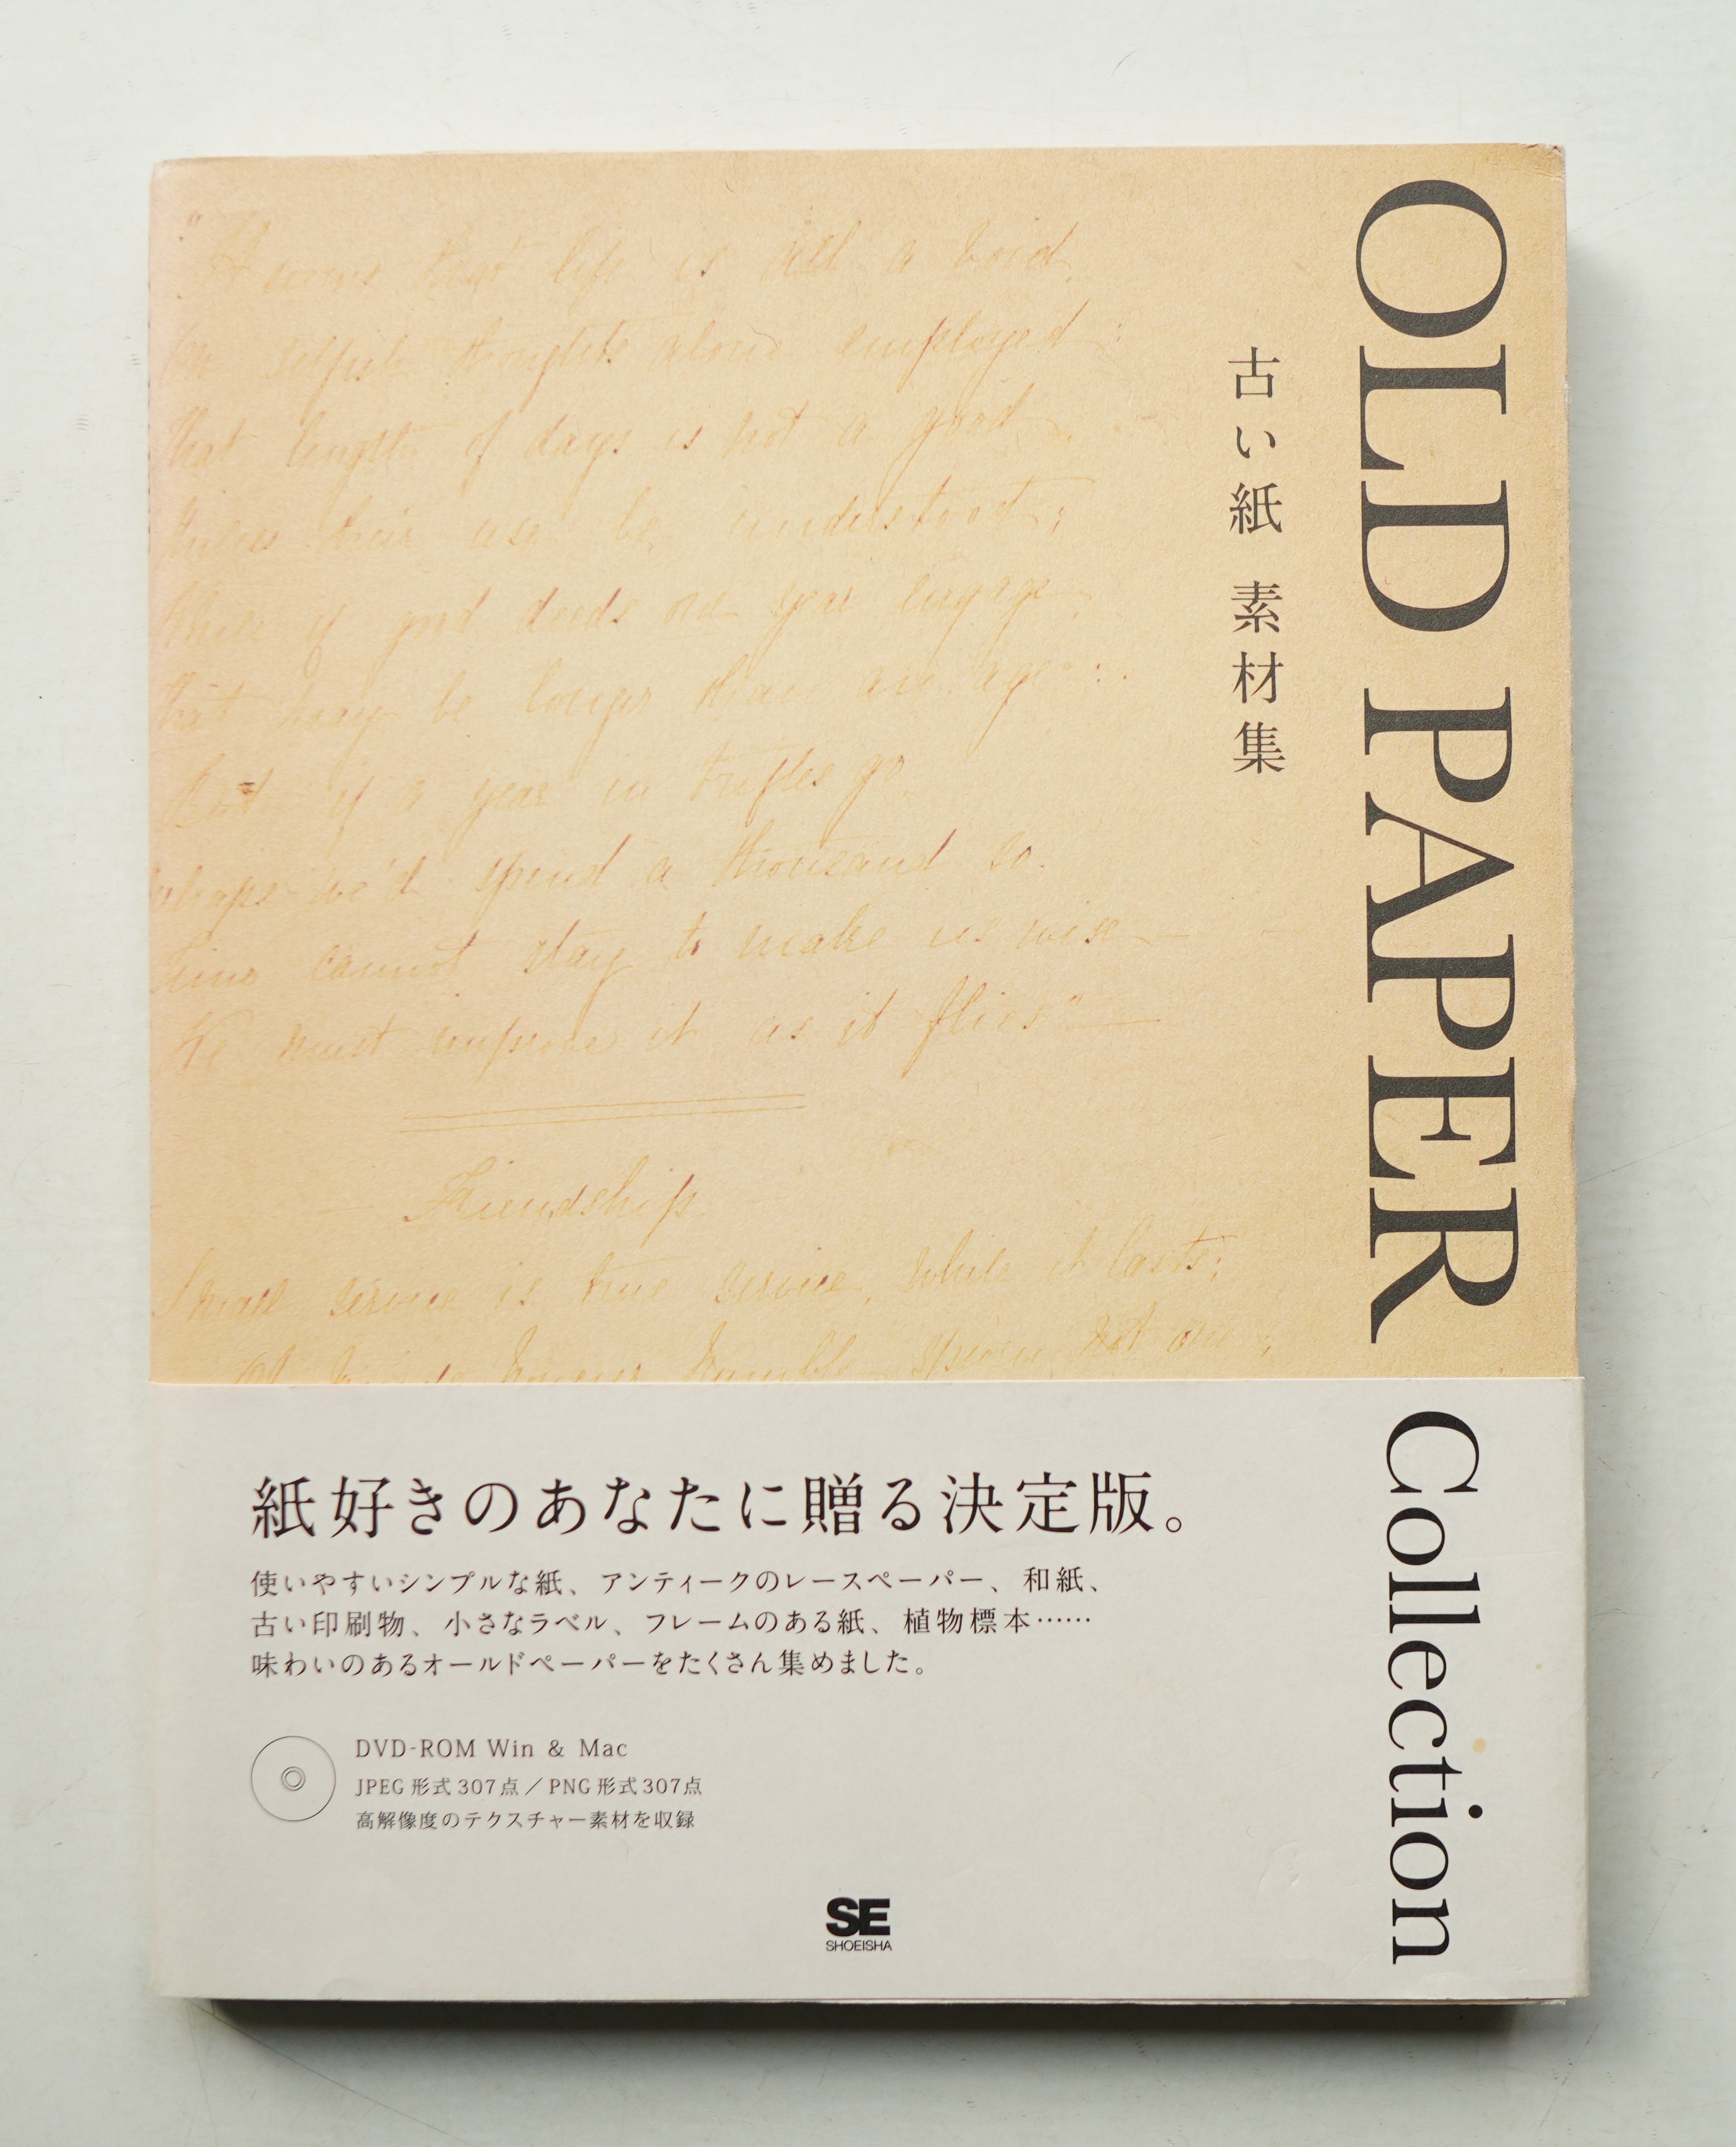 OLD PAPER Collection
古い紙 素材集
life is all a void
selfish thoughts alone employed :
That length of days is not a good,
their use be understood;
While if good deeds one year engage,
That may be longer than an age :
But if a year in trifles go.
Perhaps we'd spend a thousand so.
Time cannot stay to make us wise —
We must improve it as it flies" —
Friendship
Small service is true service, while it lasts;
humble spurn not one ;
紙好きのあなたに贈る決定版。
使いやすいシンプルな紙、アンティークのレースペーパー、和紙、
古い印刷物、小さなラベル、フレームのある紙、植物標本……
味わいのあるオールドペーパーをたくさん集めました。
DVD-ROM Win & Mac
JPEG 形式 307点／PNG 形式 307点
高解像度のテクスチャー素材を収録
SE
SHOEISHA